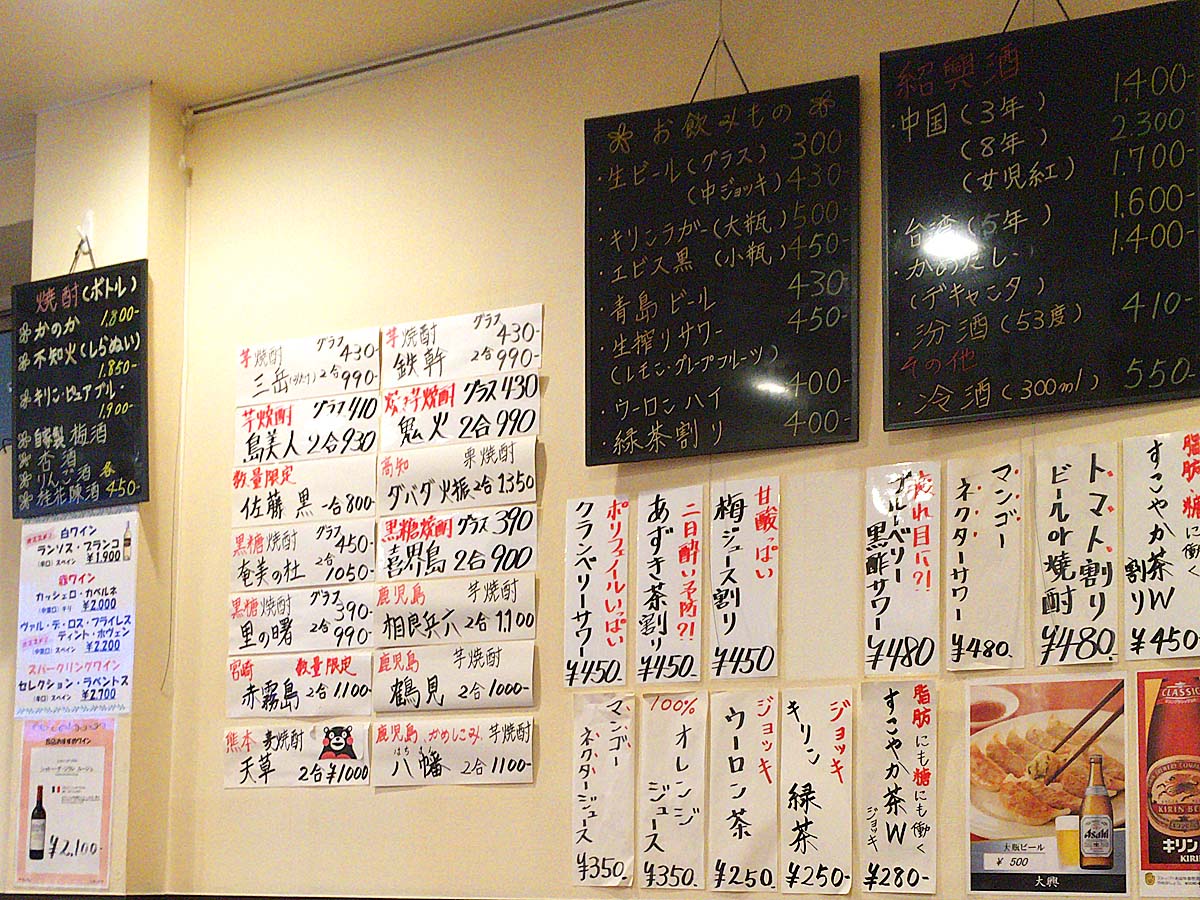 焼酎(ボトル)
かのか 1.800-
不知火(しらぬい)
1.850-
キリン・ピュアブルー
1.900-
自家製梅酒
杏酒
りんご酒 各
桂花陳酒 450-
白ワイン
ランソス・ブランコ
(辛口)スペイン ¥1.900
赤ワイン
カッシェロ・カベルネ
(中重口)チリ ¥2.000
ヴァル・デ・ロス・フライレス
ティント・ホヴェン
(中重口)スペイン ¥2.200
スパークリングワイン
セレクション・ラベントス
(辛口)スペイン ¥2.700
当店おすすめワイン
¥2,100-
芋焼酎 グラス 430-
三岳 2合 990-
芋焼酎 グラス 410
島美人 2合 930
数量限定
佐藤 黒 一合 800-
黒糖焼酎 グラス 450-
奄美の杜 1050-
黒糖焼酎 グラス 390-
里の曙 990-
宮崎 数量限定
赤霧島 2合 1100-
熊本 麦焼酎
天草 2合 ¥1000
芋焼酎 グラス 430-
鉄幹 2合 990-
焼き芋焼酎 グラス 430
鬼火 2合 990
高知 栗焼酎
ダバダ火振 2合 1.350
黒糖焼酎 グラス 390
喜界島 2合 900
鹿児島
相良兵六 2合 1,100
鹿児島 芋焼酎
鶴見 2合 1000-
鹿児島 かめしこみ 芋焼酎
はちまん
八幡 2合 1100-
お飲みもの
・生ビール(グラス) 300
(中ジョッキ) 430-
・キリンラガー(大瓶) 500-
・エビス黒 (小瓶) 450-
・青島ビール 430-
・生搾りサワー 450-
(レモン・グレープフルーツ)
・ウーロンハイ 400-
・緑茶割り 400-
紹興酒
・中国(3年) 1.400-
(8年) 2.300-
(女児紅) 1.700-
・台湾(5年) 1.600-
・かめだし 1.400-
(デキャンタ)
・汾酒(53度) 410-
その他
・冷酒(300ml) 550-
ポリフェノールいっぱい
クランベリーサワー
¥450.
二日酔い予防?!
あずき茶割り
¥450.
甘酸っぱい
梅ジュース割り
¥450
疲れ目に?!
ブルーベリー
黒酢サワー
¥480
マンゴー
ネクターサワー
¥480.
トマト割り
ビールor焼酎
¥480.
脂肪、糖に働く
すこやか茶W
割り
¥450
マンゴー
ネクタージュース
¥350.
100%
オレンジ
ジュース
¥350.
ジョッキ
ウーロン茶
¥250.
ジョッキ
キリン 緑茶
¥250-
脂肪にも糖にも働く
すこやか茶W
ジョッキ
¥280-
Asahi
大瓶ビール
¥ 500
大興
CLASSIC
KIRIN
キリン
KIRI